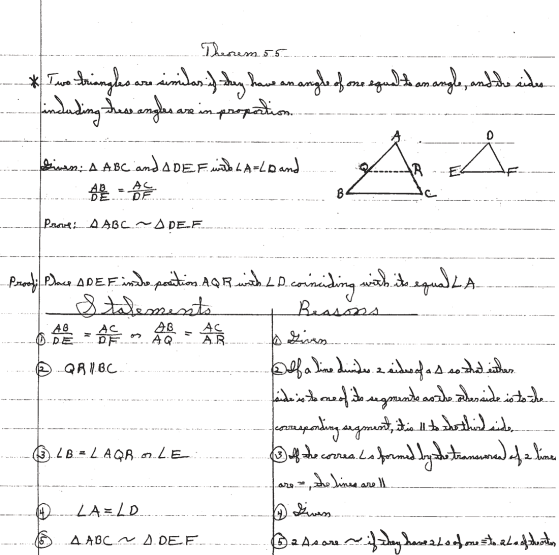 Theorem 55
* Two triangles are similar if they have an angle of one equal to an angle, and the sides
including these angles are in proportion.
A
D
Given: △ ABC and △ DEF with ∠A=∠D and
Q R E F
AB/DE = AC/DF
B C
Prove: △ ABC ~ △ DEF
Proof: Place △DEF in the position AQR with ∠D coinciding with its equal ∠A
Statements Reasons
① AB/DE = AC/DF or AB/AQ = AC/AR ① Given
② QR ∥ BC ② If a line divides 2 sides of a △ so that either
side is to one of its segments as the other side is to the
corresponding segment, it is ∥ to the third side.
③ ∠B = ∠AQR or ∠E ③ If the corres. ∠s formed by the transversal of 2 lines
are =, the lines are ∥
④ ∠A = ∠D ④ Given
⑤ △ ABC ~ △ DEF ⑤ 2 △s are ~ if they have 2∠s of one = to 2∠s of the